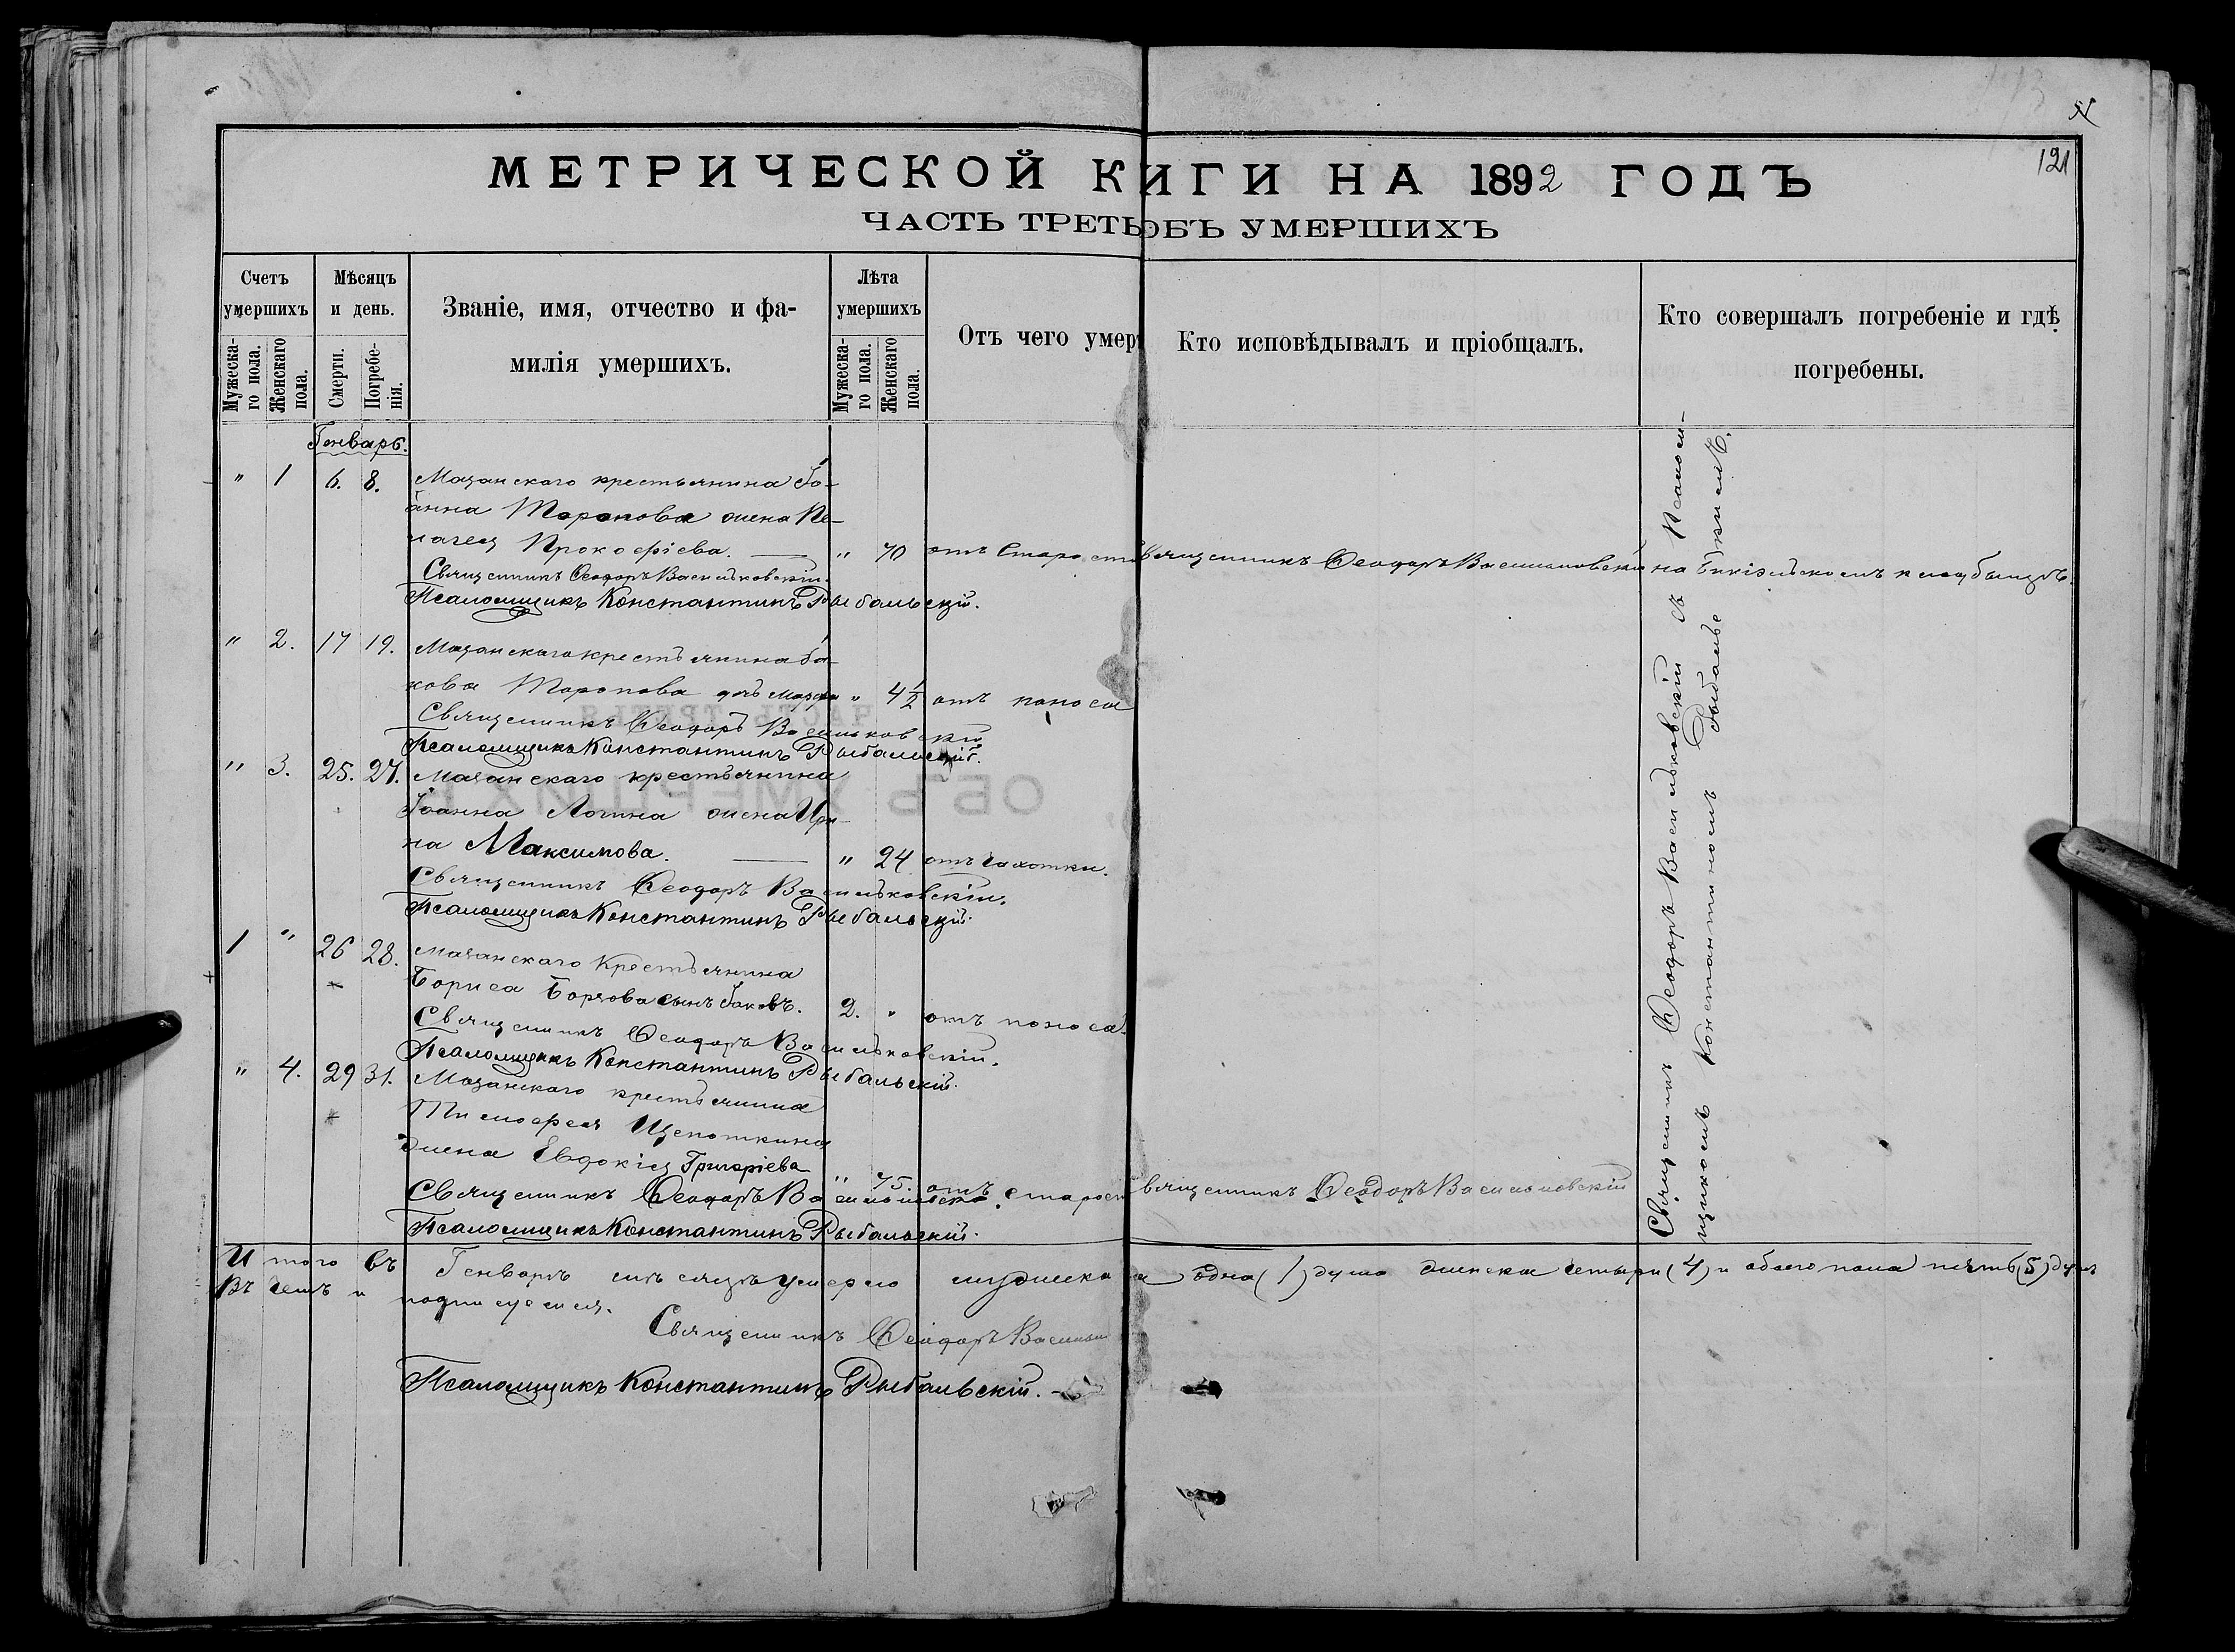 МЕТРИЧЕСКОЙ К ИГИ НА 1892 ГОДЪ
121
ЧАСТЬ ТРЕТЬ ОБЪ УМЕРШИХЪ
Счетъ умершихъ
Мужеска-го пола.
Женскаго пола.
Мѣсяцъ и день.
Смерти.
Погребе-нія.
Званіе, имя, отчество и фа-
милія умершихъ.
Лѣта умершихъ
Мужеска-го пола.
Женскаго пола.
Отъ чего умер
Кто исповѣдывалъ и пріобщалъ.
Кто совершалъ погребеніе и гдѣ
погребены.
Генварь.
" 1 6. 8. Мазанскаго крестьянина Іо-
анна Торопова жена Пе-
лагея Прокофіева. — " 70 отъ Старости Священникъ Ѳеодоръ Васильковскій на кладбищѣ.
Священникъ Ѳеодоръ Васильковскій.
Псаломщикъ Константинъ Рыбальскій.
" 2. 17 19. Мазанскаго крестьянина Іа-
кова Торопова дочь " 4½ отъ поноса
Священникъ Ѳеодоръ Васильковскій
Псаломщикъ Константинъ Рыбальскій.
" 3. 25. 27. Мазанскаго крестьянина
Іоанна Логина жена Ири-
на Максимова. — " 24 отъ чахотки.
Священникъ Ѳеодоръ Васильковскій.
Псаломщикъ Константинъ Рыбальскій.
1 " 26 28. Мазанскаго Крестьянина
Бориса Борзова сынъ Іаковъ. 2. " отъ поноса.
Священникъ Ѳеодоръ Васильковскій.
Псаломщикъ Константинъ Рыбальскій.
" 4. 29 31. Мазанскаго крестьянина
Тимофея Щепоткина
жена Евдокія Григоріева " 75. отъ старости Священникъ Ѳеодоръ Васильковскій
Священникъ Ѳеодоръ Васильковскій.
Псаломщикъ Константинъ Рыбальскій.
Священникъ Ѳеодоръ Васильковскій съ Псалом-
щикомъ Константиномъ Рыбальскимъ.
Итого въ Генварѣ мѣсяцѣ умерло мужеска одна (1) душа женска четыри (4) и обоего пола пять (5) душъ
Въ чемъ и подписуемся.
Священникъ Ѳеодоръ Васильк
Псаломщикъ Константинъ Рыбальскій.